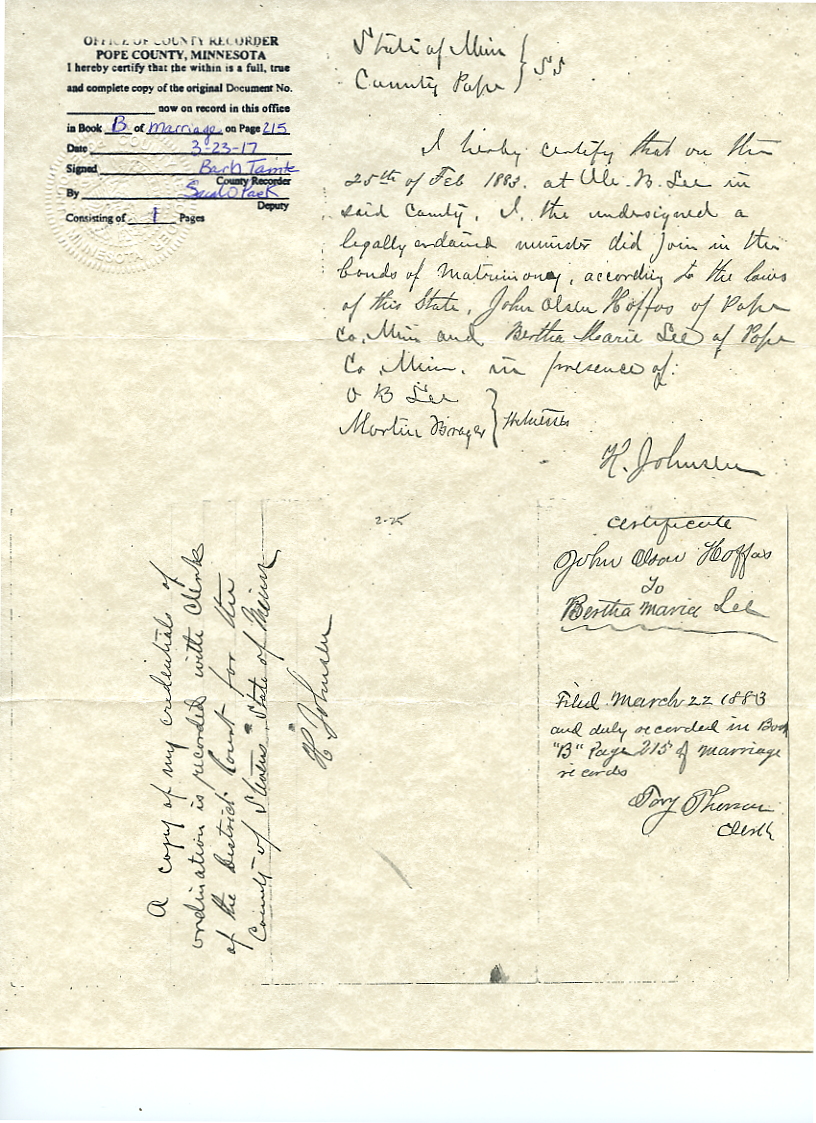 OFFICE OF COUNTY RECORDER
POPE COUNTY, MINNESOTA
I hereby certify that the within is a full, true
and complete copy of the original Document No.
now on record in this office
in Book B of Marriage on Page 215
Date 3-23-17
Signed Barb Tamte
County Recorder
By
Deputy
Consisting of 1 Pages
State of Minn } SS
County Pope
I hereby certify that on the
25th of Feb 1883. at Ole. B. Lee in
said County, I, the undersigned a
legally ordained minister did join in the
bonds of matrimony, according to the laws
of this State, John Olsen Hoffos of Pope
Co. Minn and Bertha Marie Lee of Pope
Co. Minn. in presence of:
O B Lee
Martin Brager } Witnesses
K. Johnsen
2-25
Certificate
John Olson Hoffos
To
Bertha Maria Lee
Filed March 22 1883
and duly recorded in Book
"B" Page 215 of marriage
records
Tory Thorson
Clerk
A copy of my credentials of
ordination is recorded with Clerk
of the District Court for the
County of Stevens State of Minn
K Johnsen